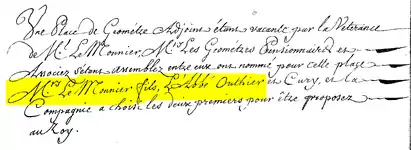 Une Place de Geométre Adjoint étant vacante par la Véterance
de Mr. Le Monnier, Mrs. Les Geométres Pensionnaires et
Associez s'étant assemblez entre eux ont nommé pour cette place
Mrs. Le Monnier fils, L'Abbé Outhier et Cury, et la
Compagnie a choisi les deux premiers pour être proposez
au Roy.